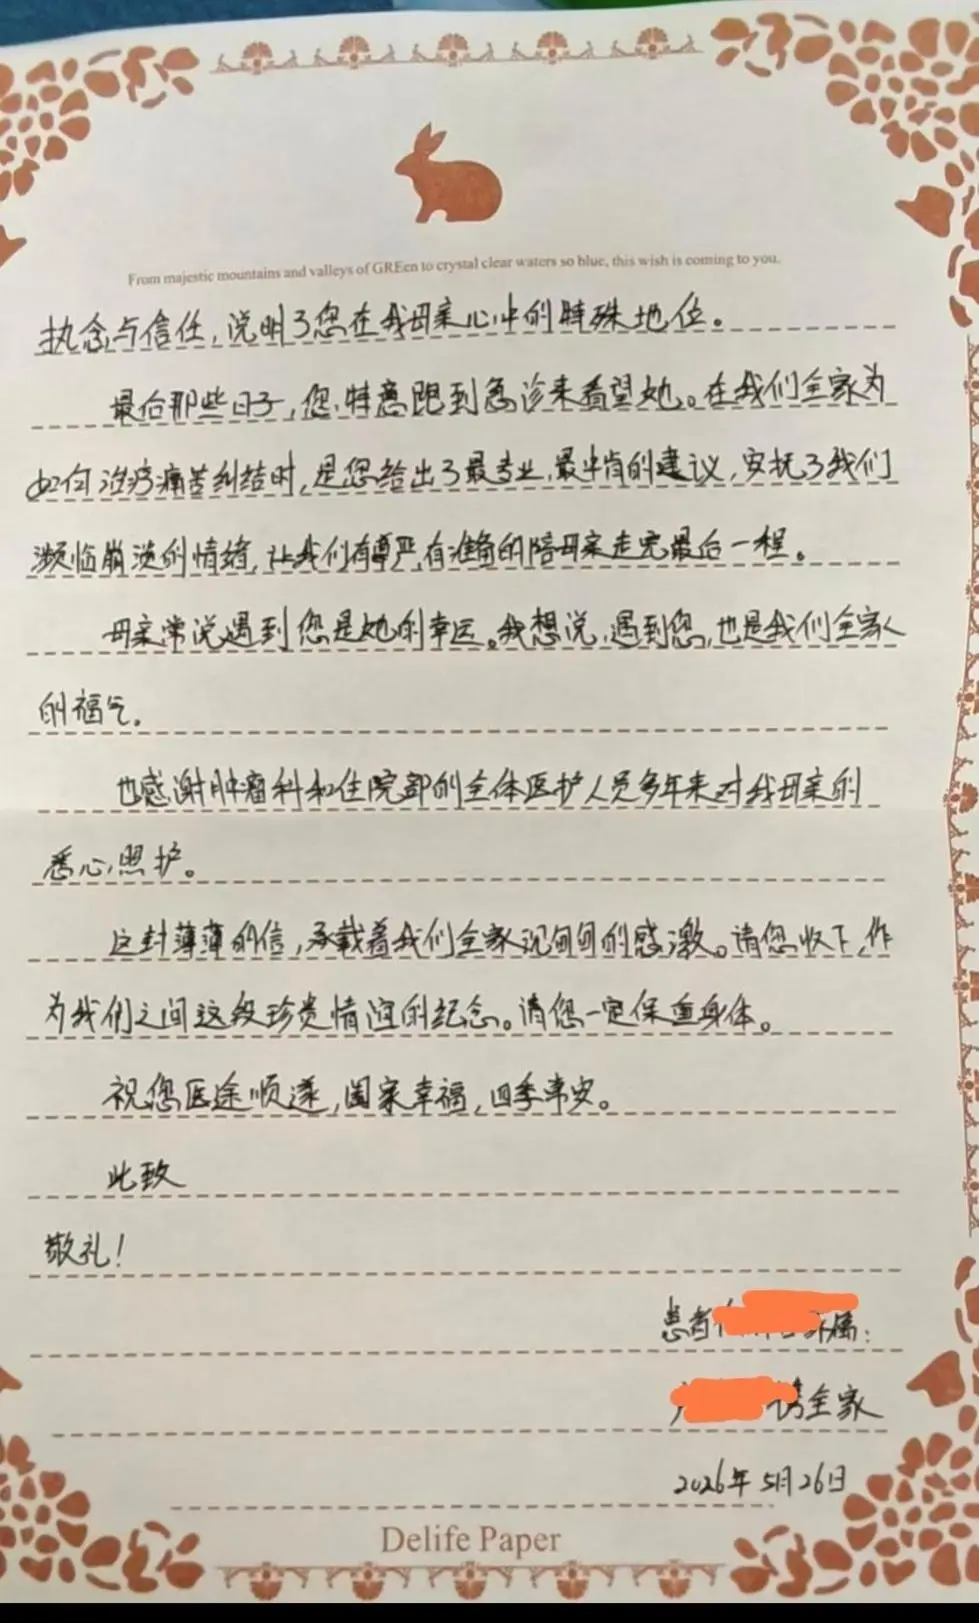 From majestic mountains and valleys of GREen to crystal clear waters so blue, this wish is coming to you.
执念与信任,说明了您在我母亲心中的特殊地位。
最后那些日子,您特意跑到急诊来看望她。在我们全家为
如何治疗痛苦纠结时,是您给出了最专业、最中肯的建议,安抚了我们
濒临崩溃的情绪,让我们有尊严、有准备的陪母亲走完最后一程。
母亲常说遇到您是她的幸运。我想说,遇到您,也是我们全家人
的福气。
也感谢肿瘤科和住院部的全体医护人员多年来对我母亲的
悉心照护。
这封薄薄的信,承载着我们全家沉甸甸的感激。请您收下,作
为我们之间这段珍贵情谊的纪念。请您一定保重身体。
祝您医途顺遂,阖家幸福,四季事安。
此致
敬礼!
患者 属:
全家
2026年5月26日
Delife Paper